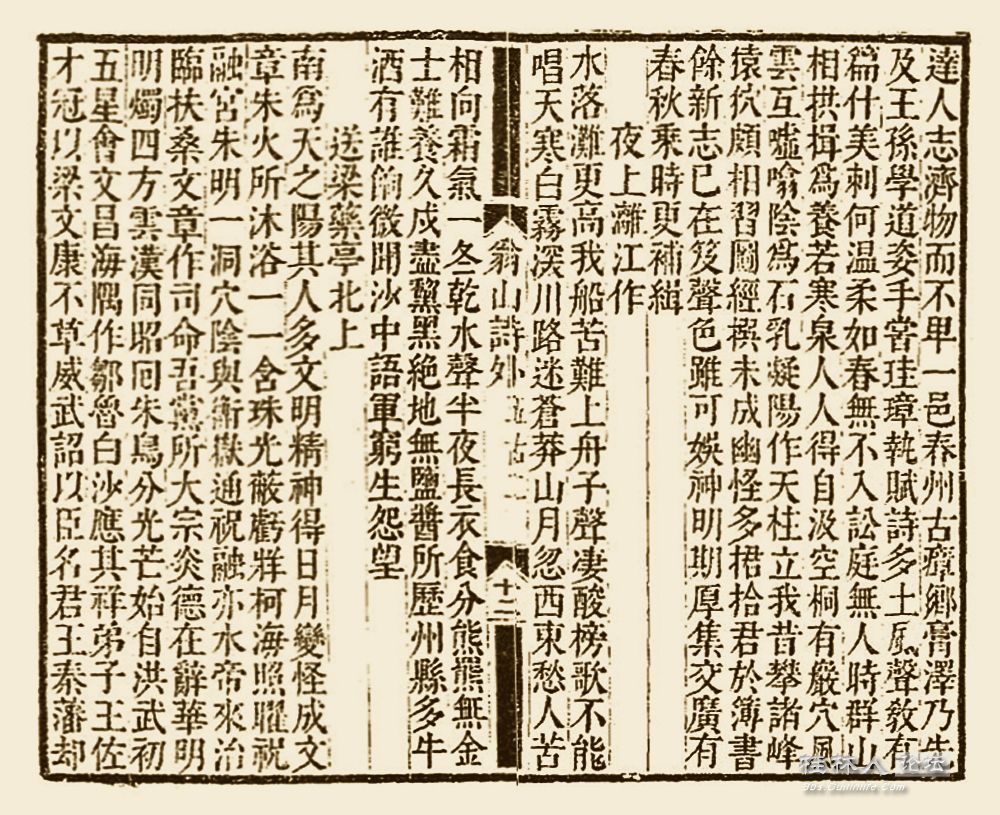 達人志濟物而不卑一邑春州古瘴鄉膏澤乃先
及王孫學道姿手嘗珪璋執賦詩多土風聲教有
篇什美刺何温柔如春無不入訟庭無人時群山
相拱揖爲養若寒泉人人得自汲空桐有巖穴風
雲互噓噏陰爲石乳凝陽作天柱立我昔攀諸峰
猿狖頗相習圖經撰未成幽怪多捃拾君於簿書
餘新志已在笈聲色雖可娛神明期厚集交廣有
春秋乘時更補緝
夜上灕江作
水落灘更高我船苦難上舟子聲凄酸榜歌不能
唱天寒白霧深川路迷蒼莽山月忽西東愁人苦
翁山詩外
十二
相向霜氣一冬乾水聲半夜長衣食分熊羆無金
士難養久戍盡黧黑絶地無鹽醬所歷州縣多牛
酒有誰餉微聞沙中語軍窮生怨望
送梁藥亭北上
南爲天之陽其人多文明精神得日月變怪成文
章朱火所沐浴一一含珠光蔽虧牂柯海照曜祝
融宮朱明一洞穴陰與衡嶽通祝融亦水帝來治
臨扶桑文章作司命吾黨所大宗炎德在辭華明
明燭四方雲漢同昭囘朱鳥分光芒始自洪武初
五星會文昌海隅作鄒魯白沙應其祥弟子王佐
才冠以梁文康不草威武詔以臣名君王秦藩却
桂林人论坛
bbs.Guilinlife.Com